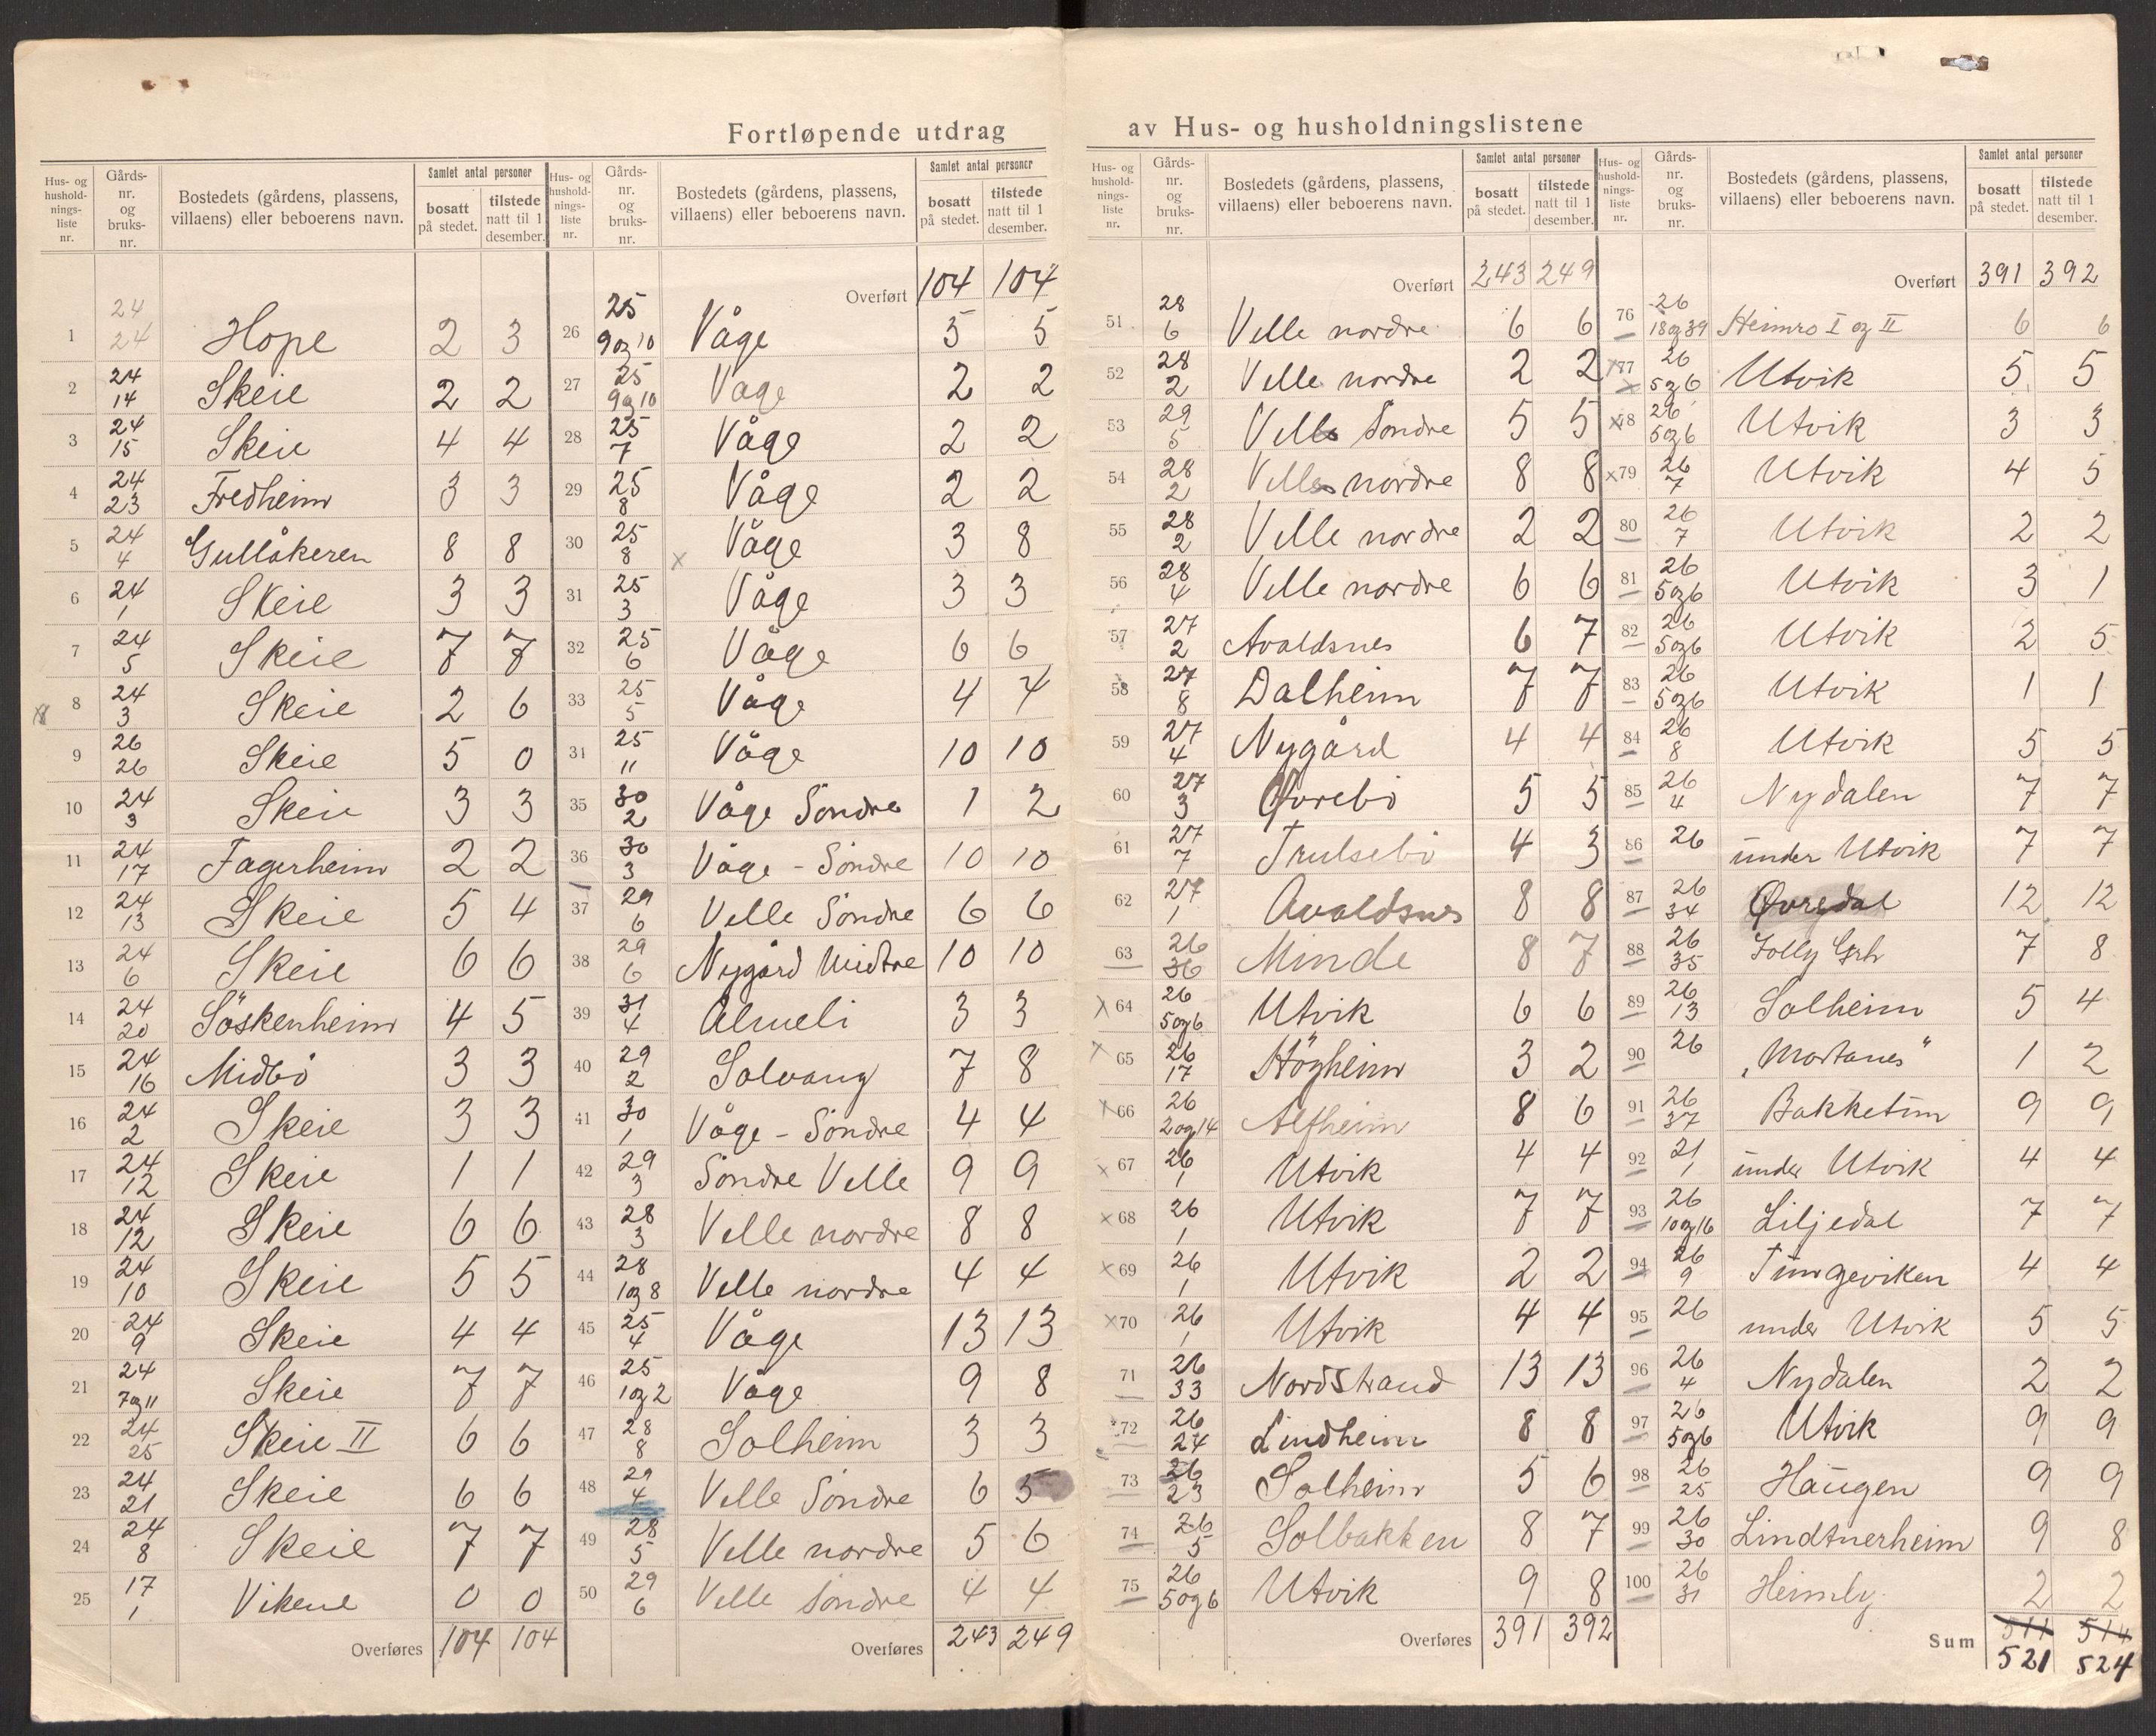 Fortløpende utdrag av Hus- og husholdningslistene
Hus- og hushold-nings-liste nr. | Gårds-nr. og bruks-nr. | Bostedets (gårdens, plassens, villaens) eller beboerens navn. | Samlet antal personer | bosatt på stedet. | tilstede natt til 1 desember.
1 24 24 Hope 2 3
2 24 14 Skeie 2 2
3 24 15 Skeie 4 4
4 24 23 Fredheim 3 3
5 24 4 Gullåkeren 8 8
6 24 1 Skeie 3 3
7 24 5 Skeie 7 7
8 24 3 Skeie 2 6
9 26 26 Skeie 5 0
10 24 3 Skeie 3 3
11 24 17 Fagerheim 2 2
12 24 13 Skeie 5 4
13 24 6 Skeie 6 6
14 24 20 Söskenheim 4 5
15 24 16 Midbö 3 3
16 24 2 Skeie 3 3
17 24 12 Skeie 1 1
18 24 12 Skeie 6 6
19 24 10 Skeie 5 5
20 24 9 Skeie 4 4
21 24 7og11 Skeie 7 7
22 24 25 Skeie II 6 6
23 24 21 Skeie 6 6
24 24 8 Skeie 7 7
25 17 1 Vikene 0 0
Overføres 104 104
Hus- og hushold-nings-liste nr. | Gårds-nr. og bruks-nr. | Bostedets (gårdens, plassens, villaens) eller beboerens navn. | Samlet antal personer | bosatt på stedet. | tilstede natt til 1 desember.
Overført 104 104
26 25 9og10 Våge 5 5
27 25 9og10 Våge 2 2
28 25 7 Våge 2 2
29 25 8 Våge 2 2
30 25 8 x Våge 3 8
31 25 3 Våge 3 3
32 25 6 Våge 6 6
33 25 5 Våge 4 4
34 25 11 Våge 10 10
35 30 2 Våge Söndre 1 2
36 30 3 Våge - Söndre 10 10
37 29 6 Velle Söndre 6 6
38 29 6 Nygård Midtre 10 10
39 31 4 Almeli 3 3
40 29 2 Solvang 7 8
41 30 1 Våge - Söndre 4 4
42 29 3 Söndre Velle 9 9
43 28 3 Velle nordre 8 8
44 28 1og8 Velle nordre 4 4
45 25 4 Våge 13 13
46 25 1og2 Våge 9 8
47 28 8 Solheim 3 3
48 29 4 Velle Söndre 6 5
49 28 5 Velle nordre 5 6
50 29 6 Velle Söndre 4 4
Overføres 243 249
Hus- og hushold-nings-liste nr. | Gårds-nr. og bruks-nr. | Bostedets (gårdens, plassens, villaens) eller beboerens navn. | Samlet antal personer | bosatt på stedet. | tilstede natt til 1 desember.
Overført 243 249
51 28 6 Velle nordre 6 6
52 28 2 Velle nordre 2 2
53 29 5 Velle Söndre 5 5
54 28 2 Velle nordre 8 8
55 28 2 Velle nordre 2 2
56 28 4 Velle nordre 6 6
57 27 2 Avaldsnes 6 7
58 27 8 Dalheim 7 7
59 27 4 Nygård 4 4
60 27 3 Øvrebö 5 5
61 27 7 Trulsebö 4 3
62 27 1 Avaldsnes 8 8
63 26 36 Minde 8 7
x 64 26 5og6 Utvik 6 6
x 65 26 17 Högheim 3 2
x 66 26 2og14 Alfheim 8 6
x 67 26 1 Utvik 4 4
x 68 26 1 Utvik 7 7
x 69 26 1 Utvik 2 2
x 70 26 1 Utvik 4 4
71 26 33 Nordstrand 13 13
72 26 24 Lindheim 8 8
73 26 23 Solheim 5 6
74 26 5 Solbakken 8 7
75 26 5og6 Utvik 9 8
Overføres 391 392
Hus- og hushold-nings-liste nr. | Gårds-nr. og bruks-nr. | Bostedets (gårdens, plassens, villaens) eller beboerens navn. | Samlet antal personer | bosatt på stedet. | tilstede natt til 1 desember.
Overført 391 392
76 26 18og39 Heimro I og II 6 6
x 77 26 5og6 Utvik 5 5
x 78 26 5og6 Utvik 3 3
x 79 26 7 Utvik 4 5
80 26 7 Utvik 2 2
81 26 5og6 Utvik 3 1
82 26 5og6 Utvik 2 5
83 26 5og6 Utvik 1 1
84 26 8 Utvik 5 5
85 26 4 Nydalen 7 7
86 26 under Utvik 7 7
87 26 34 Øvredal 12 12
88 26 35 Solly 7 8
89 26 13 Solheim 5 4
90 26 1 2
91 26 37 Bakketun 9 9
92 21 1 under Utvik 4 4
93 26 10og16 Liljedal 7 7
94 26 9 Tungeviken 4 4
95 26 under Utvik 5 5
96 26 4 Nydalen 2 2
97 26 5og6 Utvik 9 9
98 26 25 Haugen 9 9
99 26 30 Lindtnerheim 9 8
100 26 31 Heimly 2 2
Sum 511 514
521 524